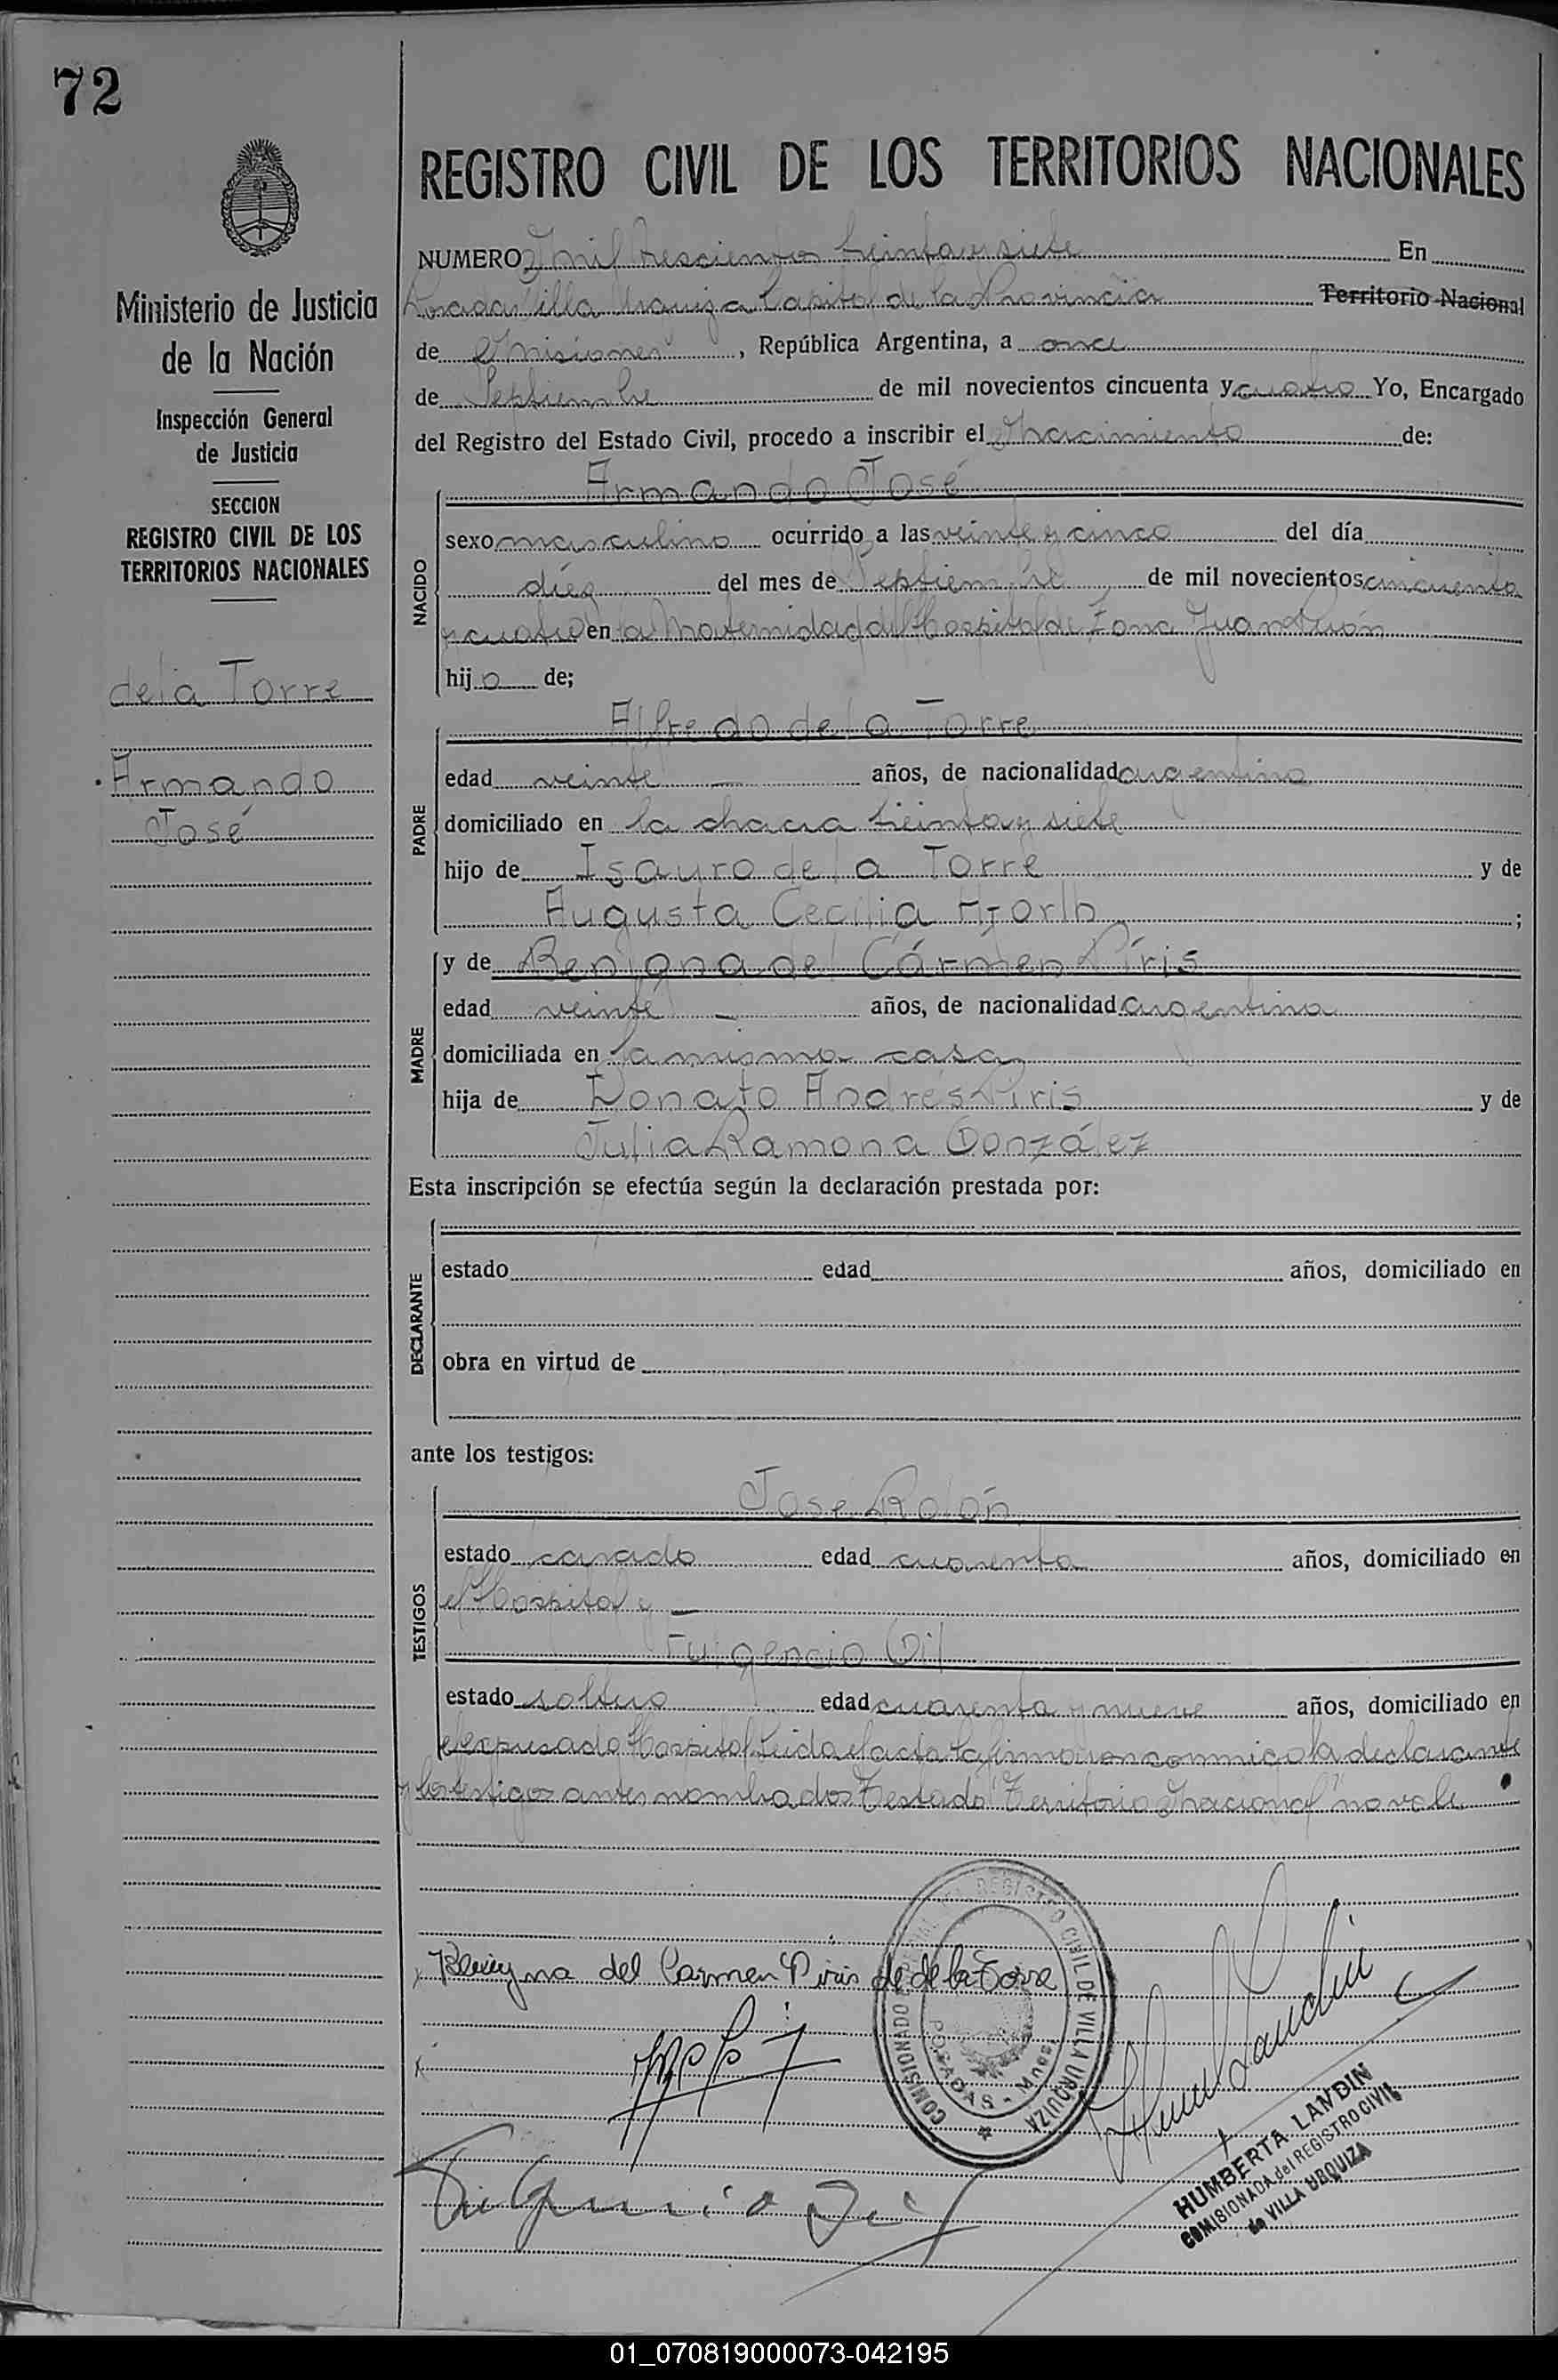 72
REGISTRO CIVIL DE LOS TERRITORIOS NACIONALES
Ministerio de Justicia
de la Nación
Inspección General
de Justicia
SECCION
REGISTRO CIVIL DE LOS
TERRITORIOS NACIONALES
de la Torre
Armando
José
NUMERO mil trescientos treinta y siete En
Posadas Villa Urquiza Capital de la Provincia Territorio Nacional
de Misiones, República Argentina, a once
de Septiembre de mil novecientos cincuenta y cuatro Yo, Encargado
del Registro del Estado Civil, procedo a inscribir el Nacimiento de:
NACIDO
Armando José
sexo masculino ocurrido a las veinte y cinco del día
diez del mes de Septiembre de mil novecientos cincuenta
y cuatro en la Maternidad del Hospital de Zona Juan Perón
hijo de;
PADRE
Alfredo de la Torre
edad veinte años, de nacionalidad argentina
domiciliado en la chacra treinta y siete
hijo de Isauro de la Torre y de
Augusta Cecilia Hjorth;
MADRE
y de Benigna del Cármen Píris
edad veinte años, de nacionalidad argentina
domiciliada en la misma casa
hija de Donato Andrés Piris y de
Julia Ramona González
Esta inscripción se efectúa según la declaración prestada por:
DECLARANTE
estado edad años, domiciliado en
obra en virtud de
ante los testigos:
TESTIGOS
Jose Rolón
estado casado edad cuarenta años, domiciliado en
el Hospital y
Fulgencio Gil
estado soltero edad cuarenta y nueve años, domiciliado en
el expresado Hospital Leida el acta la firmaron conmigo la declarante
y los testigos antes nombrados Testado "Territorio Nacional" no vale
Benigna del Carmen Piris de de la Torre
COMISIONADO REGISTRO CIVIL DE VILLA URQUIZA
POSADAS - Mnes.
HUMBERTA LANDIN
COMISIONADA del REGISTRO CIVIL
de VILLA URQUIZA
01_070819000073-042195